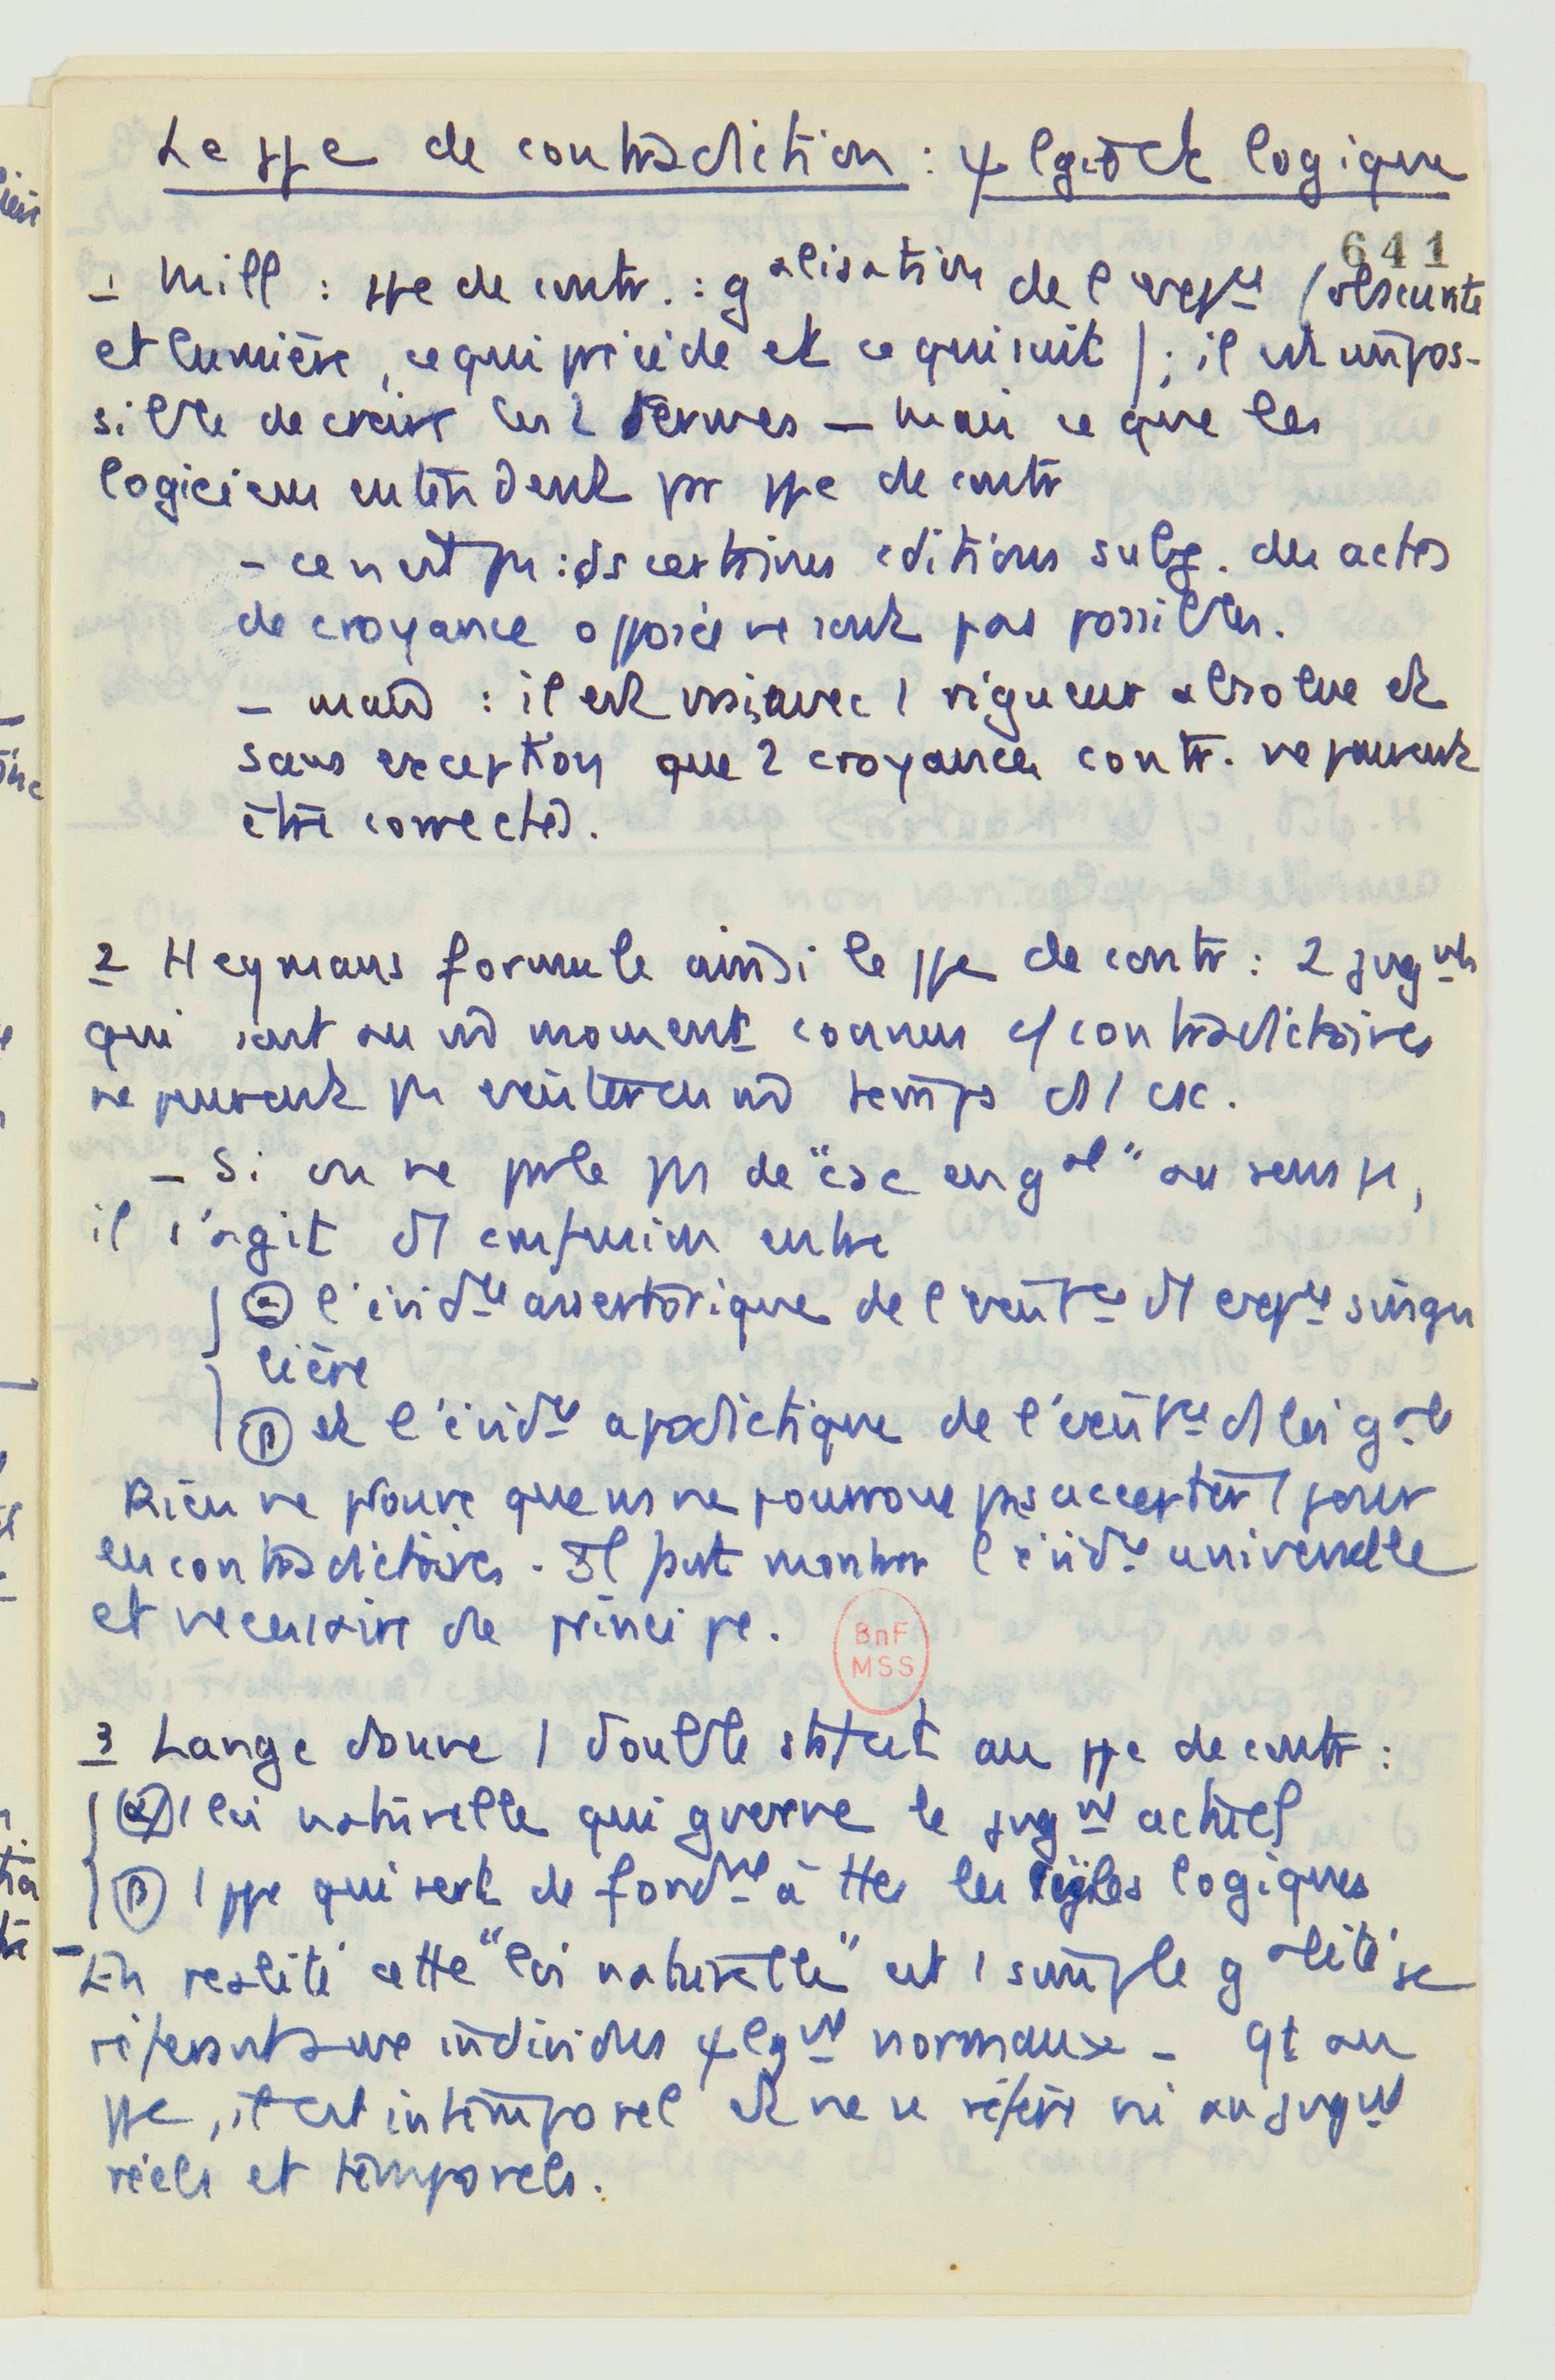 Le ppe de contradiction : ψlgie et logique
641
1 Mill : ppe de contr. : galisation de l'expce (obscurité
et lumière, ce qui précède et ce qui suit) ; il est impos-
sible de croire les 2 termes – mais ce que les
logiciens entendent par ppe de contr
– ce n'est pas : ds certaines cditions subj. des actes
de croyance opposés ne sont pas possibles.
– mais : il est vrai, avec 1 rigueur absolue et
sans exception que 2 croyances contr. ne peuvent
être correctes.
2 Heymans formule ainsi le ppe de contr : 2 jugmts
qui sont au m̂ moment connus c/ contradictoires
ne peuvent pas exister en m̂ temps ds 1 csc.
– Si on ne parle pas de "csc en gal" au sens
il s'agit d'1 confusion entre
α l'évidce assertorique de l'existce d'1 expce singu
lière
β et l'évidce apodictique de l'existce d'1 loi gale
Rien ne prouve que ns ne pourrons pas accepter 1 jour
les contradictoires. Il faut montrer l'évidce universelle
et nécessaire de principe.
BnF
MSS
3 Lange donne 1 double statut au ppe de contr :
α 1 loi naturelle qui gverne le jugmt actuel
β 1 ppe qui sert de fondmt à ttes les règles logiques
– En réalité cette "loi naturelle" est 1 simple galité se
référant aux individus ψlgmt normaux – Qt au
ppe, il est intemporel et ne se réfère ni au jugmt
réels et temporels.